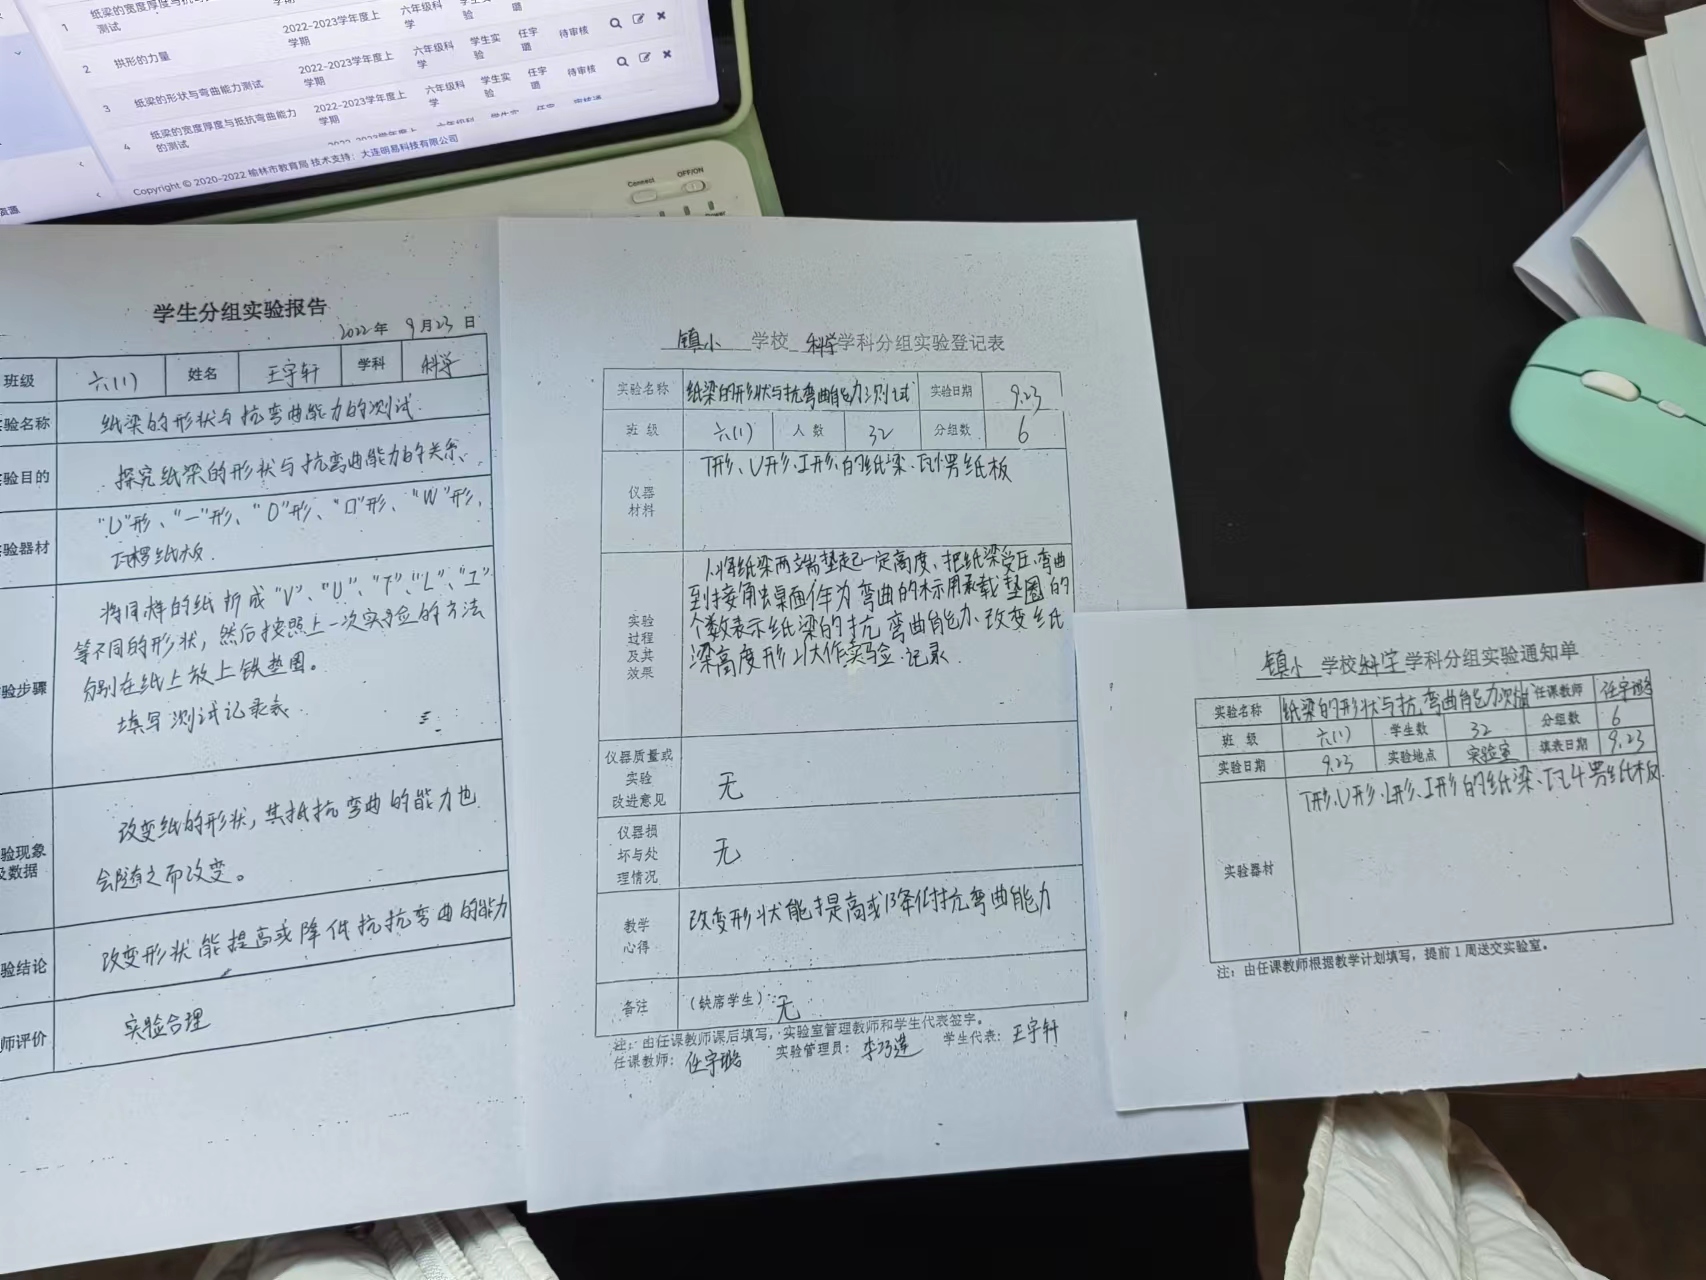 1 纸梁的宽度厚度与抗
测试
2022-2023学年度上
学期
六年级科
学
学生实
验
2 拱形的力量
2022-2023学年度上
学期
六年级科
学
学生实
验
任宇
璐
待审核
3 纸梁的形状与弯曲能力测试
2022-2023学年度上
学期
六年级科
学
学生实
验
任宇
璐
待审核
4 纸梁的宽度厚度与抵抗弯曲能力
的测试
Copyright © 2020-2022 榆林市教育局 技术支持：大连明易科技有限公司
资源
Connect
OFF/ON
Power
学生分组实验报告
2022年 9月23日
班级 六(1) 姓名 王宇轩 学科 科学
验名称 纸梁的形状与抗弯曲能力的测试
验目的 探究纸梁的形状与抗弯曲能力的关系、
验器材 "U"形、"一"形、"O"形、"口"形、"W"形，
瓦楞纸板.
验步骤 将同样的纸折成"V"、"U"、"T"、"L"、"工"
等不同的形状，然后按照上一次实验的方法
分别在纸上放上铁垫圈。
填写测试记录表
验现象
及数据
改变纸的形状，其抵抗弯曲的能力也
会随之而改变。
验结论 改变形状能提高或降低抗抗弯曲的能力
师评价 实验合理
镇小 学校 科学 学科分组实验登记表
实验名称 纸梁的形状与抗弯曲能力测试 实验日期 9.23
班 级 六(1) 人 数 32 分组数 6
仪器
材料
T形、U形、工形、的纸梁、瓦楞纸板
实验
过程
及其
效果
1.将纸梁两端垫起一定高度、把纸梁受压弯曲
到接触桌面作为弯曲的标用承载垫圈的
个数表示纸梁的抗弯曲能力、改变纸
梁高度形状作实验记录.
仪器质量或
实验
改进意见
无
仪器损
坏与处
理情况
无
教学
心得
改变形状能提高或降低抗弯曲能力
备注 (缺席学生)：无
注：由任课教师课后填写，实验室管理教师和学生代表签字。
任课教师：任宇璐 实验管理员：李巧莲 学生代表：王宇轩
镇小 学校 科学 学科分组实验通知单
实验名称 纸梁的形状与抗弯曲能力 任课教师 任宇璐
班 级 六(1) 学生数 32 分组数 6
实验日期 9.23 实验地点 实验室 填表日期 9.23
实验器材 T形、U形、L形、工形的纸梁、瓦楞纸板
注：由任课教师根据教学计划填写，提前1周送交实验室。